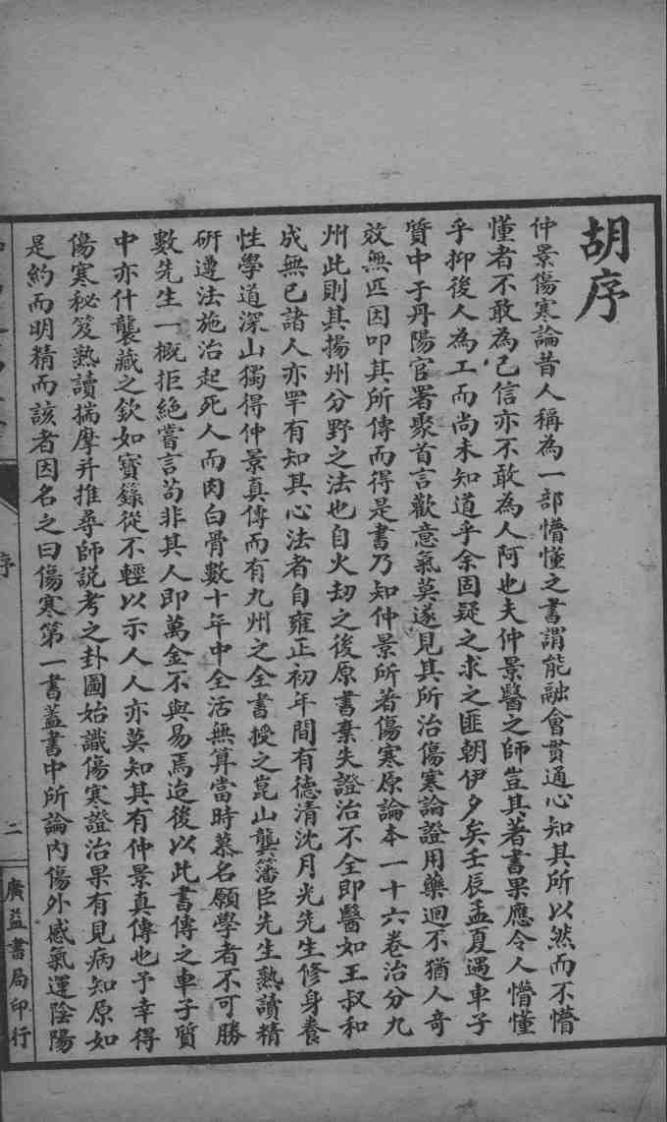 胡序
仲景傷寒論昔人稱為一部懵懂之書謂能融會貫通心知其所以然而不懵
懂者不敢為己信亦不敢為人阿也夫仲景醫之師豈其著書果應令人懵懂
乎抑後人為工而尚未知道乎余固疑之求之匪朝伊夕矣壬辰孟夏遇車子
質中于丹陽官署聚首言歡意氣莫遂見其所治傷寒論證用藥迥不猶人奇
效無匹因叩其所傳而得是書乃知仲景所著傷寒原論本一十六卷治分九
州此則其揚州分野之法也自火劫之後原書棄失證治不全即醫如王叔和
成無已諸人亦罕有知其心法者自雍正初年間有德清沈月光先生修身養
性學道深山獨得仲景真傳而有九州之全書授之崑山龔藩臣先生熟讀精
研遵法施治起死人而肉白骨數十年中全活無算當時慕名願學者不可勝
數先生一概拒絕嘗言苟非其人即萬金不與易焉迨後以此書傳之車子質
中亦什襲藏之欽如寶籙從不輕以示人人亦莫知其有仲景真傳也予幸得
傷寒秘笈熟讀揣摩并推尋師說考之卦圖始識傷寒證治果有見病知原如
是約而明精而該者因名之曰傷寒第一書蓋書中所論內傷外感氣運陰陽
序
二
廣益書局印行